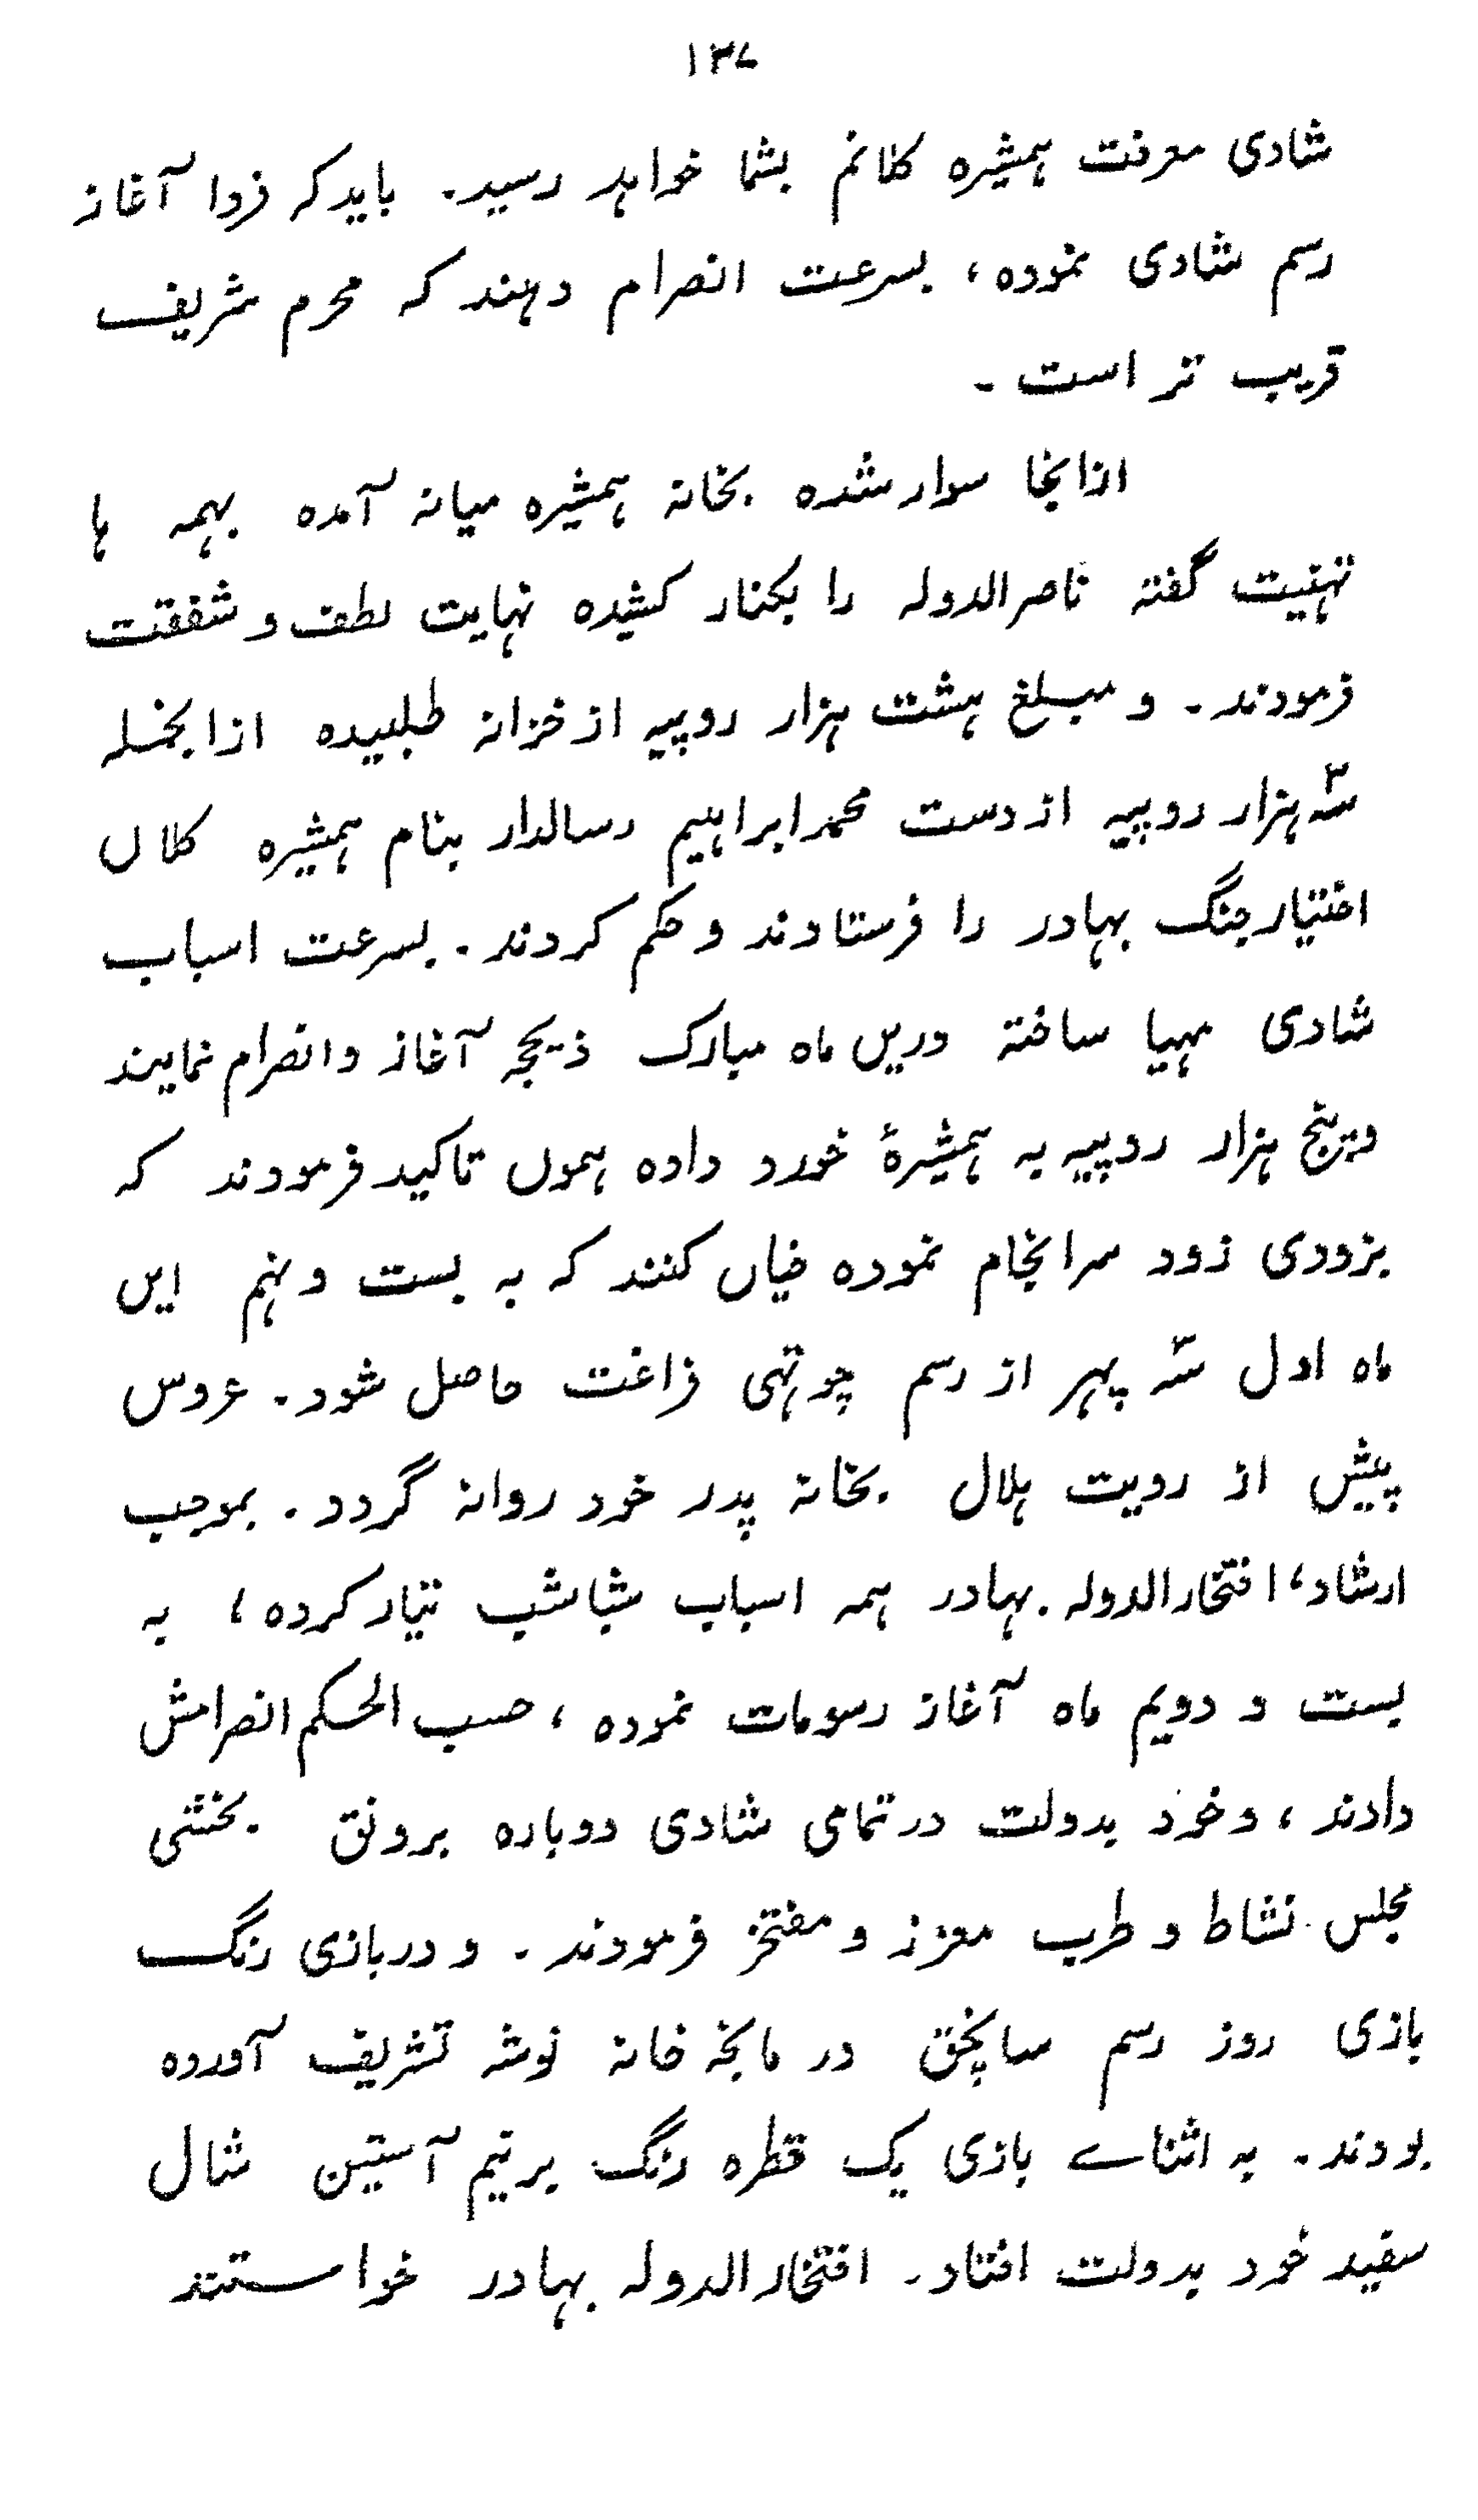 ۱۳۷
شادی معرفت ہمشیرہ کلانم بشما خواہد رسید۔ باید کہ فردا آغاز
رسم شادی نمودہ، بسرعت انصرام دہند کہ محرم شریف
قریب تر است۔
ازانجا سوار شدہ بخانہ ہمشیرہ میانہ آمدہ بہمہ ہا
تہنیت گفتہ ناصر الدولہ را بکنار کشیدہ نہایت لطف و شفقت
فرمودند۔ و مبلغ ہشت ہزار روپیہ از خزانہ طلبیدہ ازانجملہ
سہ ہزار روپیہ از دست محمد ابراہیم رسالدار بنام ہمشیرہ کلاں
اختیار جنگ بہادر را فرستادند و حکم کردند۔ بسرعت اسباب
شادی مہیا ساختہ دریں ماہ مبارک ذیحجہ آغاز و انصرام نمایند
و پنج ہزار روپیہ بہ ہمشیرۂ خورد دادہ ہموں تاکید فرمودند کہ
بزودی زود سرانجام نمودہ خیاں کنند کہ بہ بست و نہم ایں
ماہ اول سہ پہر از رسم چوتہی فراغت حاصل شود۔ عروس
پیش از رویت ہلال بخانہ پدر خود روانہ گردد۔ بموجب
ارشاد، افتخار الدولہ بہادر ہمہ اسباب شباشب تیار کردہ، بہ
بست و دویم ماہ آغاز رسومات نمودہ، حسب الحکم انصرامش
دادند، و خود بدولت در تمامی شادی دوبارہ برونق بخشی
مجلس نشاط و طرب معزز و مفتخر فرمودند۔ و در بازی رنگ
بازی روز رسم ساچق در مانجہ خانہ نوشہ تشریف آوردہ
بودند۔ بہ اثناے بازی یک قطرہ رنگ بر نیم آستین شال
سفید خود بدولت افتاد۔ افتخار الدولہ بہادر خواستند